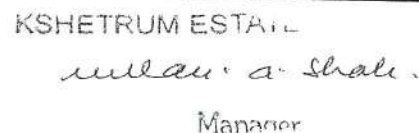 KSHETRUM ESTATE
a. Shah.
Manager